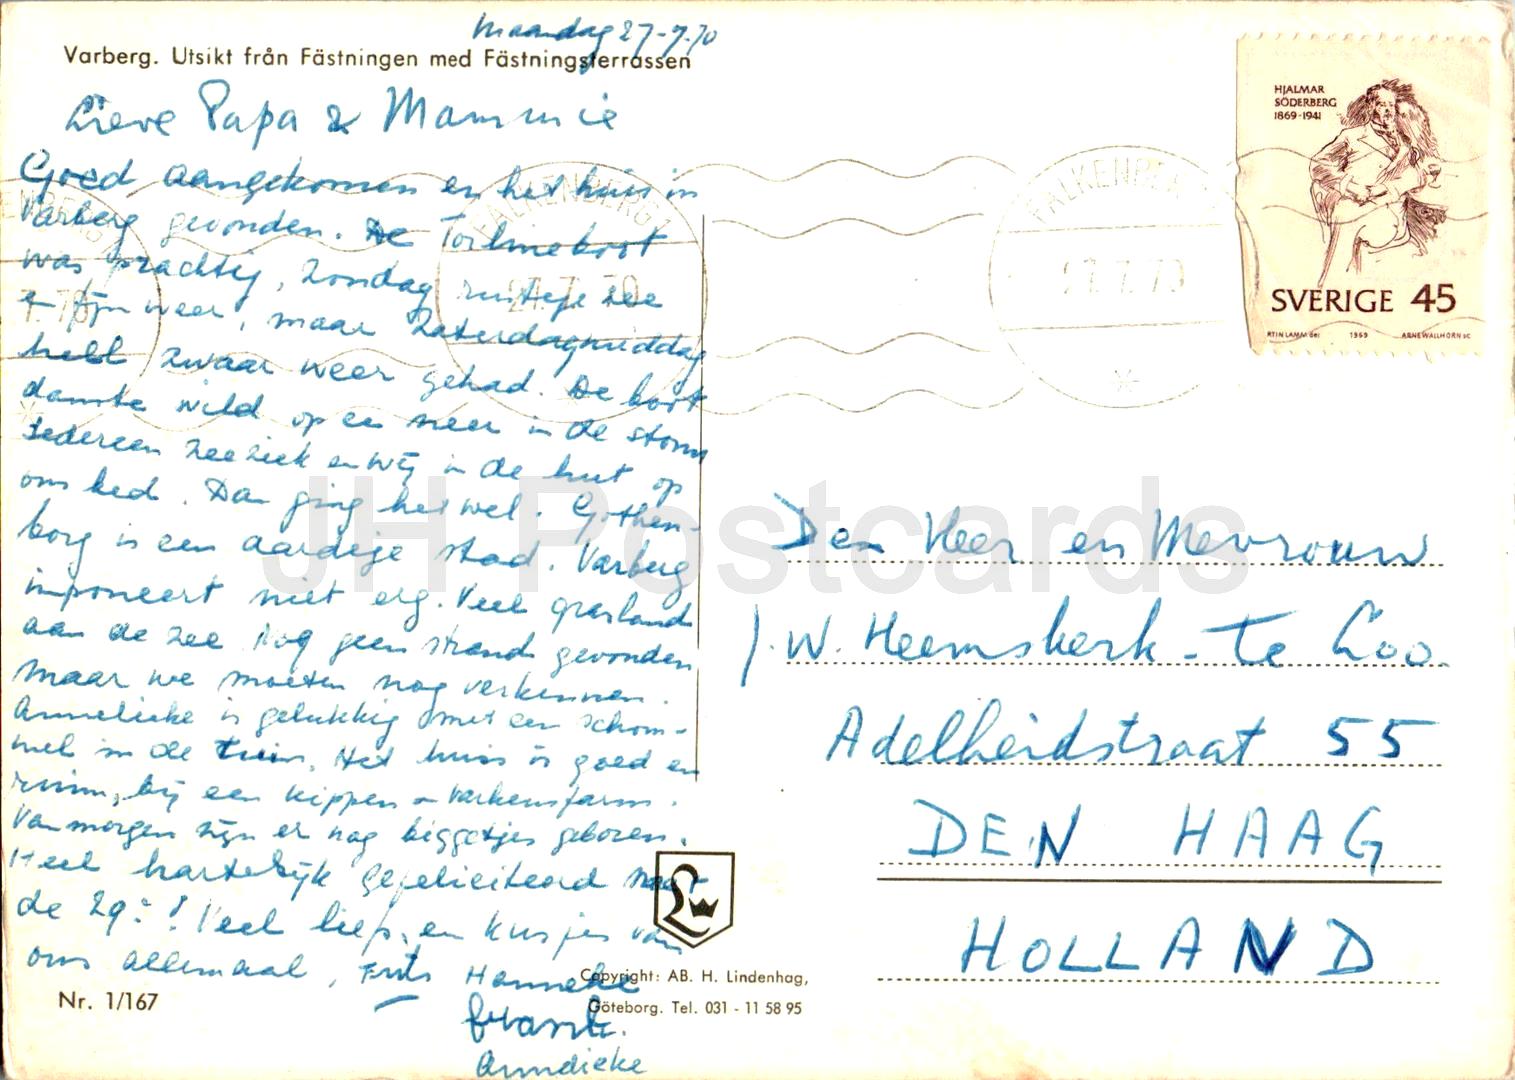 Maandag 27-7-70
Varberg. Utsikt från Fästningen med Fästningsterrassen
Lieve Papa & Mammie
Goed aangekomen en het huis in
Varberg gevonden. De Torlineboot
was prachtig, Zondag rustige zee
+ fijn weer, maar Zaterdagmiddag
hebb zwaar weer gehad. De boot
danste wild op en neer in de storm
Iedereen zeeziek en wij in de hut op
ons bed. Dan ging het wel. Gothen-
borg is een aardige stad. Varberg
imponeert niet erg. Veel grasland
aan de zee. Nog geen strand gevonden
maar we moeten nog verkennen.
Annelieke is gelukkig met een schom-
mel in de tuin. Het huis is goed en
ruim, bij een kippen + varkensfarm.
Vanmorgen zijn er nog biggetjes geboren.
Heel hartelijk gefeliciteerd naar
de 29e! Veel liefs, en kusjes van
ons allemaal, Frits Hanneke
Frank.
Annelieke
Nr. 1/167
Copyright: AB. H. Lindenhag,
Göteborg. Tel. 031 - 11 58 95
HJALMAR
SÖDERBERG
1869-1941
SVERIGE 45
RTIN LAMM del 1969 ARNE WALLHORN SC
FALKENBERG 1
27.7.70
Den Heer en Mevrouw
J.W. Heemskerk - te Loo.
Adelheidstraat 55
DEN HAAG
HOLLAND
JH Postcards